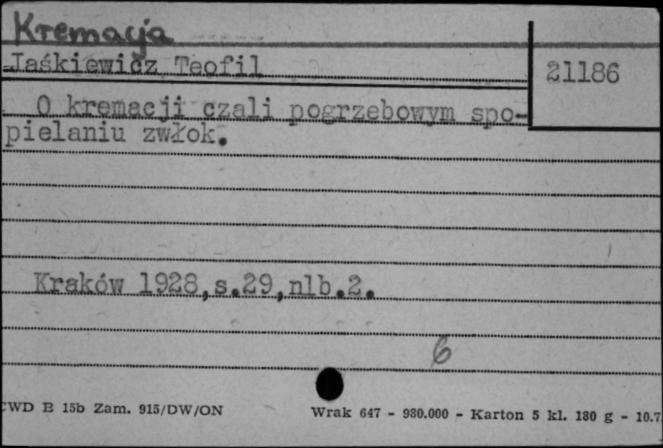 Kremacja
Jaśkiewicz Teofil
21186
O kremacji czali pogrzebowym spo-
pielaniu zwłok.
Kraków 1928,s.29,nlb.2.
6
CWD B 15b Zam. 915/DW/ON
Wrak 647 - 980.000 - Karton 5 kl. 180 g - 10.7